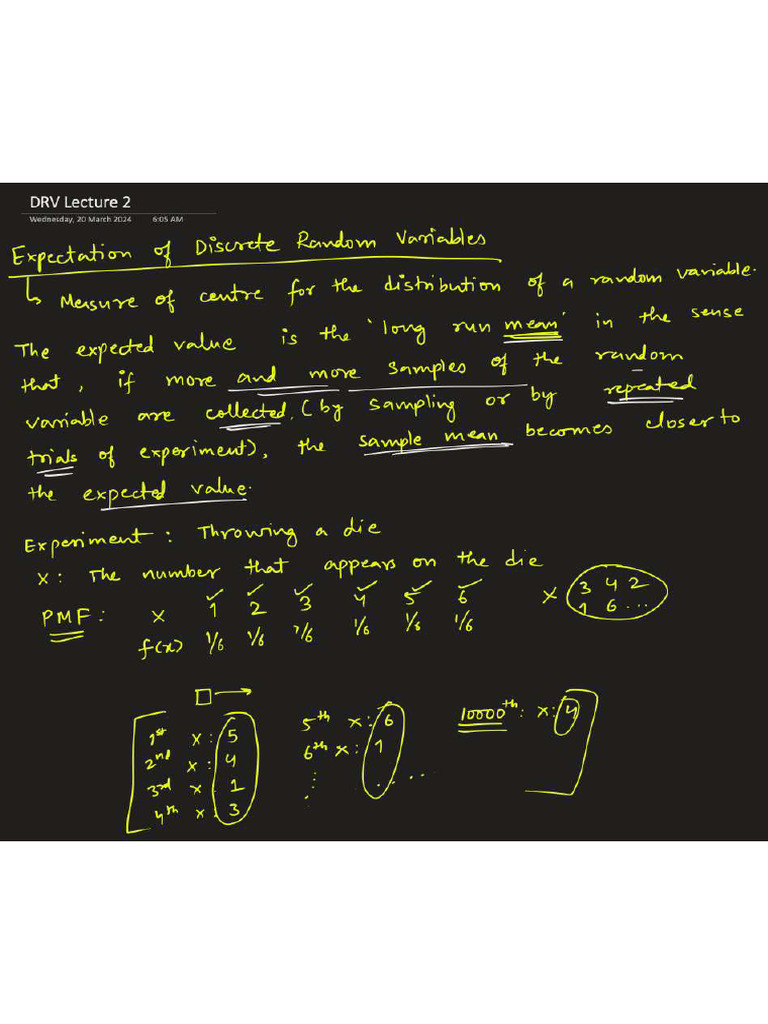 DRV Lecture 2
Wednesday, 20 March 2024 6:05 AM
Expectation of Discrete Random Variables
↳ Measure of centre for the distribution of a random variable.
The expected value is the 'long run mean' in the sense
that, if more and more samples of the random
variable are collected, (by sampling or by repeated
trials of experiment), the sample mean becomes closer to
the expected value.
Experiment: Throwing a die
X: The number that appears on the die
PMF: x 1 2 3 4 5 6
f(x) 1/6 1/6 1/6 1/6 1/6 1/6
X 3 4 2
1 6 ...
1st X: 5
2nd X: 4
3rd X 1
4th X 3
5th X: 6
6th X: 1
10000th: X: 4